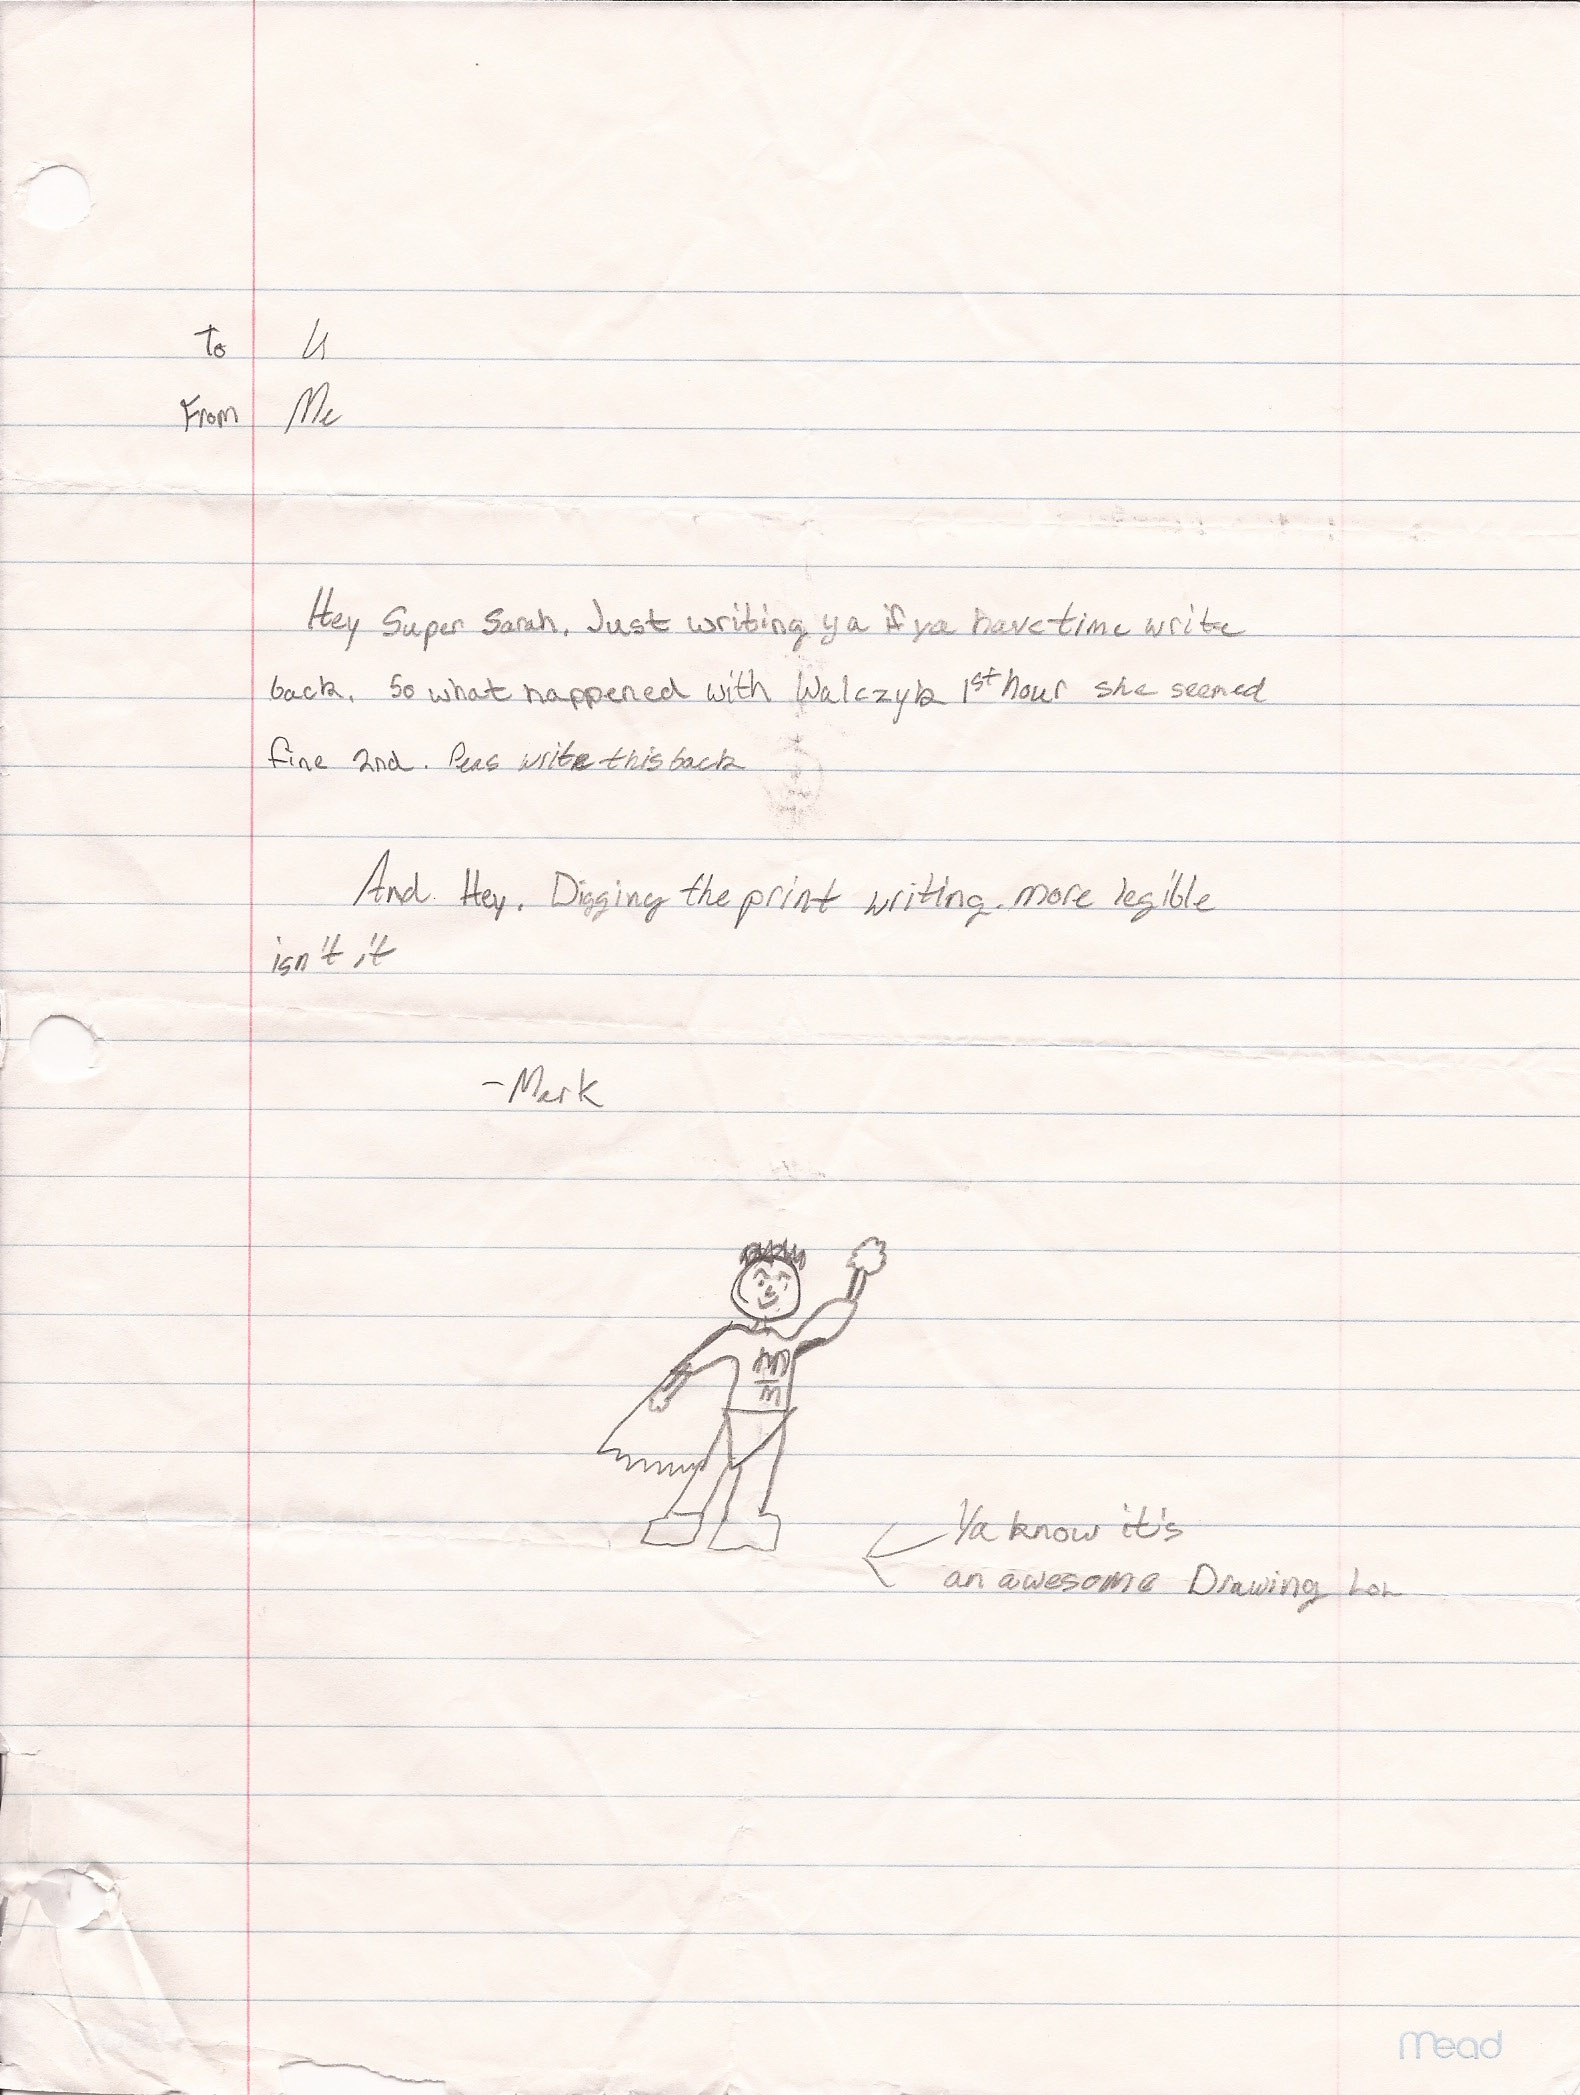 To U
From Me
Hey Super Sarah. Just writing ya if ya have time write
back. So what happened with Walczyk 1st hour she seemed
fine 2nd. Peas write this back
And Hey. Digging the print writing. more legible
isn't it
-Mark
M
M
Ya know it's
an awesome Drawing LOL
Mead